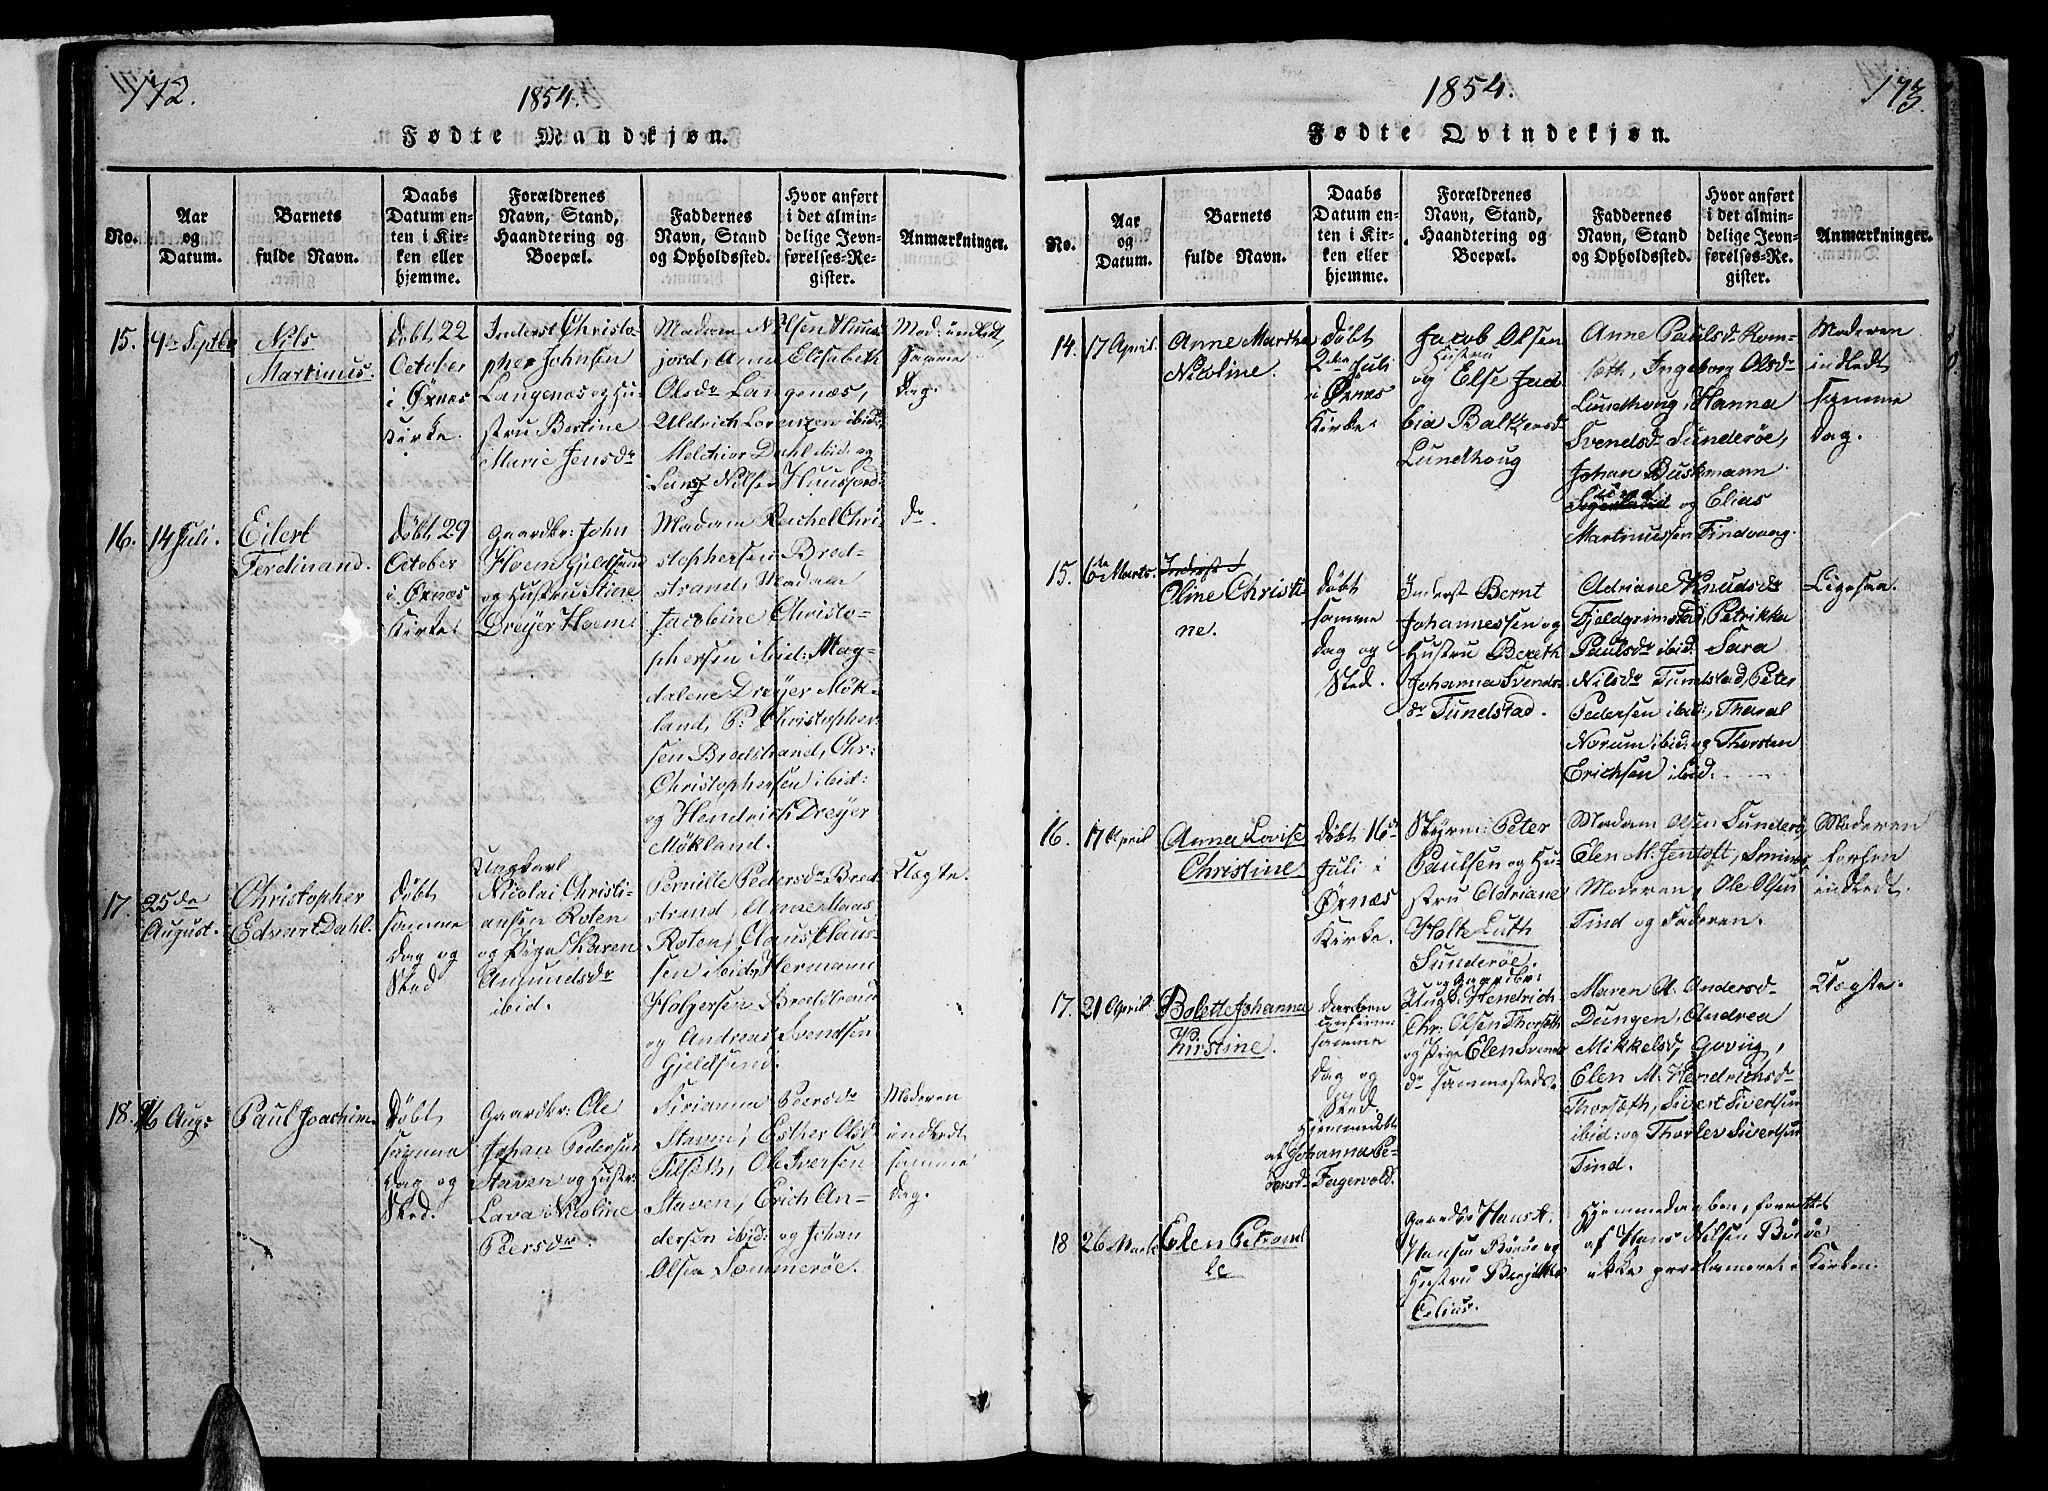 172.
1854.
Fødte Mandkjøn.
No.
Aar
og
Datum.
Barnets
fulde Navn.
Daabs
Datum en-
ten i Kir-
ken eller
hjemme.
Forældrenes
Navn, Stand,
Haandtering og
Boepæl.
Faddernes
Navn, Stand
og Opholdssted.
Hvor anført
i det almin-
delige Jevn-
førelses-Re-
gister.
Anmærkninger.
15.
9de Septbr
Nils
Martinus.
Døbt 22
October
i Øxnes
Kirke.
Inderst Christo-
pher Johnsen
Langenes og Hu-
stru Bertine
Marie Jensdr
Madam Nilsen Huus-
fjord, Anne Elisabeth
Olsdr Langenæs,
Aldrich Lorenzen ibid:
Melchior Dahl ibid: og
Lars Nilsen Huusfjord
Mod: indledt
samme
Dag.
16.
14 Juli.
Eilert
Ferdinand.
Døbt 29
October
i Øxnes
Kirke.
Gaardbr: John
Hoem Gjeldsund
og Hustru Stine
Dreyer Hoem.
Madam Rachel Chri-
stophersen Brod-
strand, Madam
Jacobine Christo-
phersen ibid: Mag-
dalene Dreyer Møk-
land, P: Christopher-
sen Brodstrand, Chr:
Christophersen ibid:
og Hendrich Dreyer
Møkland.
do
17.
25de
August.
Christopher
Edvart Dahl.
Døbt
samme
Dag og
Sted
Ungkarl
Nicolai Christi-
ansen Roten
og Pige Karen
Amundsdr
ibid.
Pernille Pedersdr Brod-
strand, Anne Klaus
Roten, Claus Klaus-
sen ibid, Hermann
Holgersen Brodstrand
og Andreas Svendsen
Gjeldsund.
Uægte.
18.
16 Augs
Paul Joachim
Døbt
samme
Dag og
Sted.
Gaardbr: Ole
Johan Pedersen
Staven og Hustr:
Lava Nicoline
Peersdr.
Sirianna Peersdr
Staven, Esther Olsdr
Tilseth, Ole Iversen
Staven, Erich An-
dersen ibid: og Johan
Olsen Sommerøe.
Moderen
indledt
samme
Dag.
173.
1854.
Fødte Qvindekjøn.
No.
Aar
og
Datum.
Barnets
fulde Navn.
Daabs
Datum en-
ten i Kir-
ken eller
hjemme.
Forældrenes
Navn, Stand,
Haandtering og
Boepæl.
Faddernes
Navn, Stand
og Opholdssted.
Hvor anført
i det almin-
delige Jevn-
førelses-Re-
gister.
Anmærkninger.
14.
17 April.
Anne Martha
Nicoline.
Døbt
2den Juli
i Øxnes
Kirke.
Jacob Olsen
Hustru
og Else Jud
bia Baltzersdr
Lundhoug
Anne Paulsdr Rom-
sæth, Ingeborg Olsdr
Lundhoug, Hanna
Svendsdr Sunderøe,
Johan Buskmann
og Elias
Martinussen Findvaag.
Moderen
indledt
samme
Dag.
15.
6te Marts.
Oline Christi-
ne.
Døbt
samme
Dag og
Sted.
Inderst Bernt
Johannessen og
Hustru Bereth
Johanna Svends-
dr Tundstad.
Adriane Knudsdr
Fjeldgrimstad, Petrikka
Paulsdr ibid: Sara
Nilsdr Tundstad, Peter
Pedersen ibid:, Tharal
Norum ibid: og Thorsten
Erichsen ibid.
Ligesaa.
16.
17 April
Anna Lovise
Christine
Døbt 16de
Juli i
Øxnæs
Kirke.
Styrm: Peter
Paulsen og Hu-
stru Adriane
Holte Luth
Sunderøe.
Madam Olsen Sunderø,
Elen M. Jentoft, Smines
Moderen, Ole Olsen
Tind og Faderen.
Moderen
forhen
indledt.
17.
21 April
Bolette Johanna
Kirstine.
Daaben
confirm:
samme
Dag og
Sted
Hjemmedøbt
af Johanna Pe-
dersdr Fagervold.
og Gaardbr:
Ungk. Hendrich
Chr: Olsen Thorseth
og Pige Elen Svends
dr sammesteds.
Maren A. Andersdr
Dungen, Andrea
Mikkelsdr Goving,
Elen M. Hendrichsdr
Thorsæth, Sivert Sivertsen
ibid: og Thorlev Sivertsen
Tind.
Uægte.
18
26 Marts
Elen Petronel
le
Gaardbr Hans A.
Hansen Børøe og
Hustru Birgitte
Celius.
Hjemmedaaben, forrettet
af Hans Nilsen Børøe
ikke proclameret i Kirken.